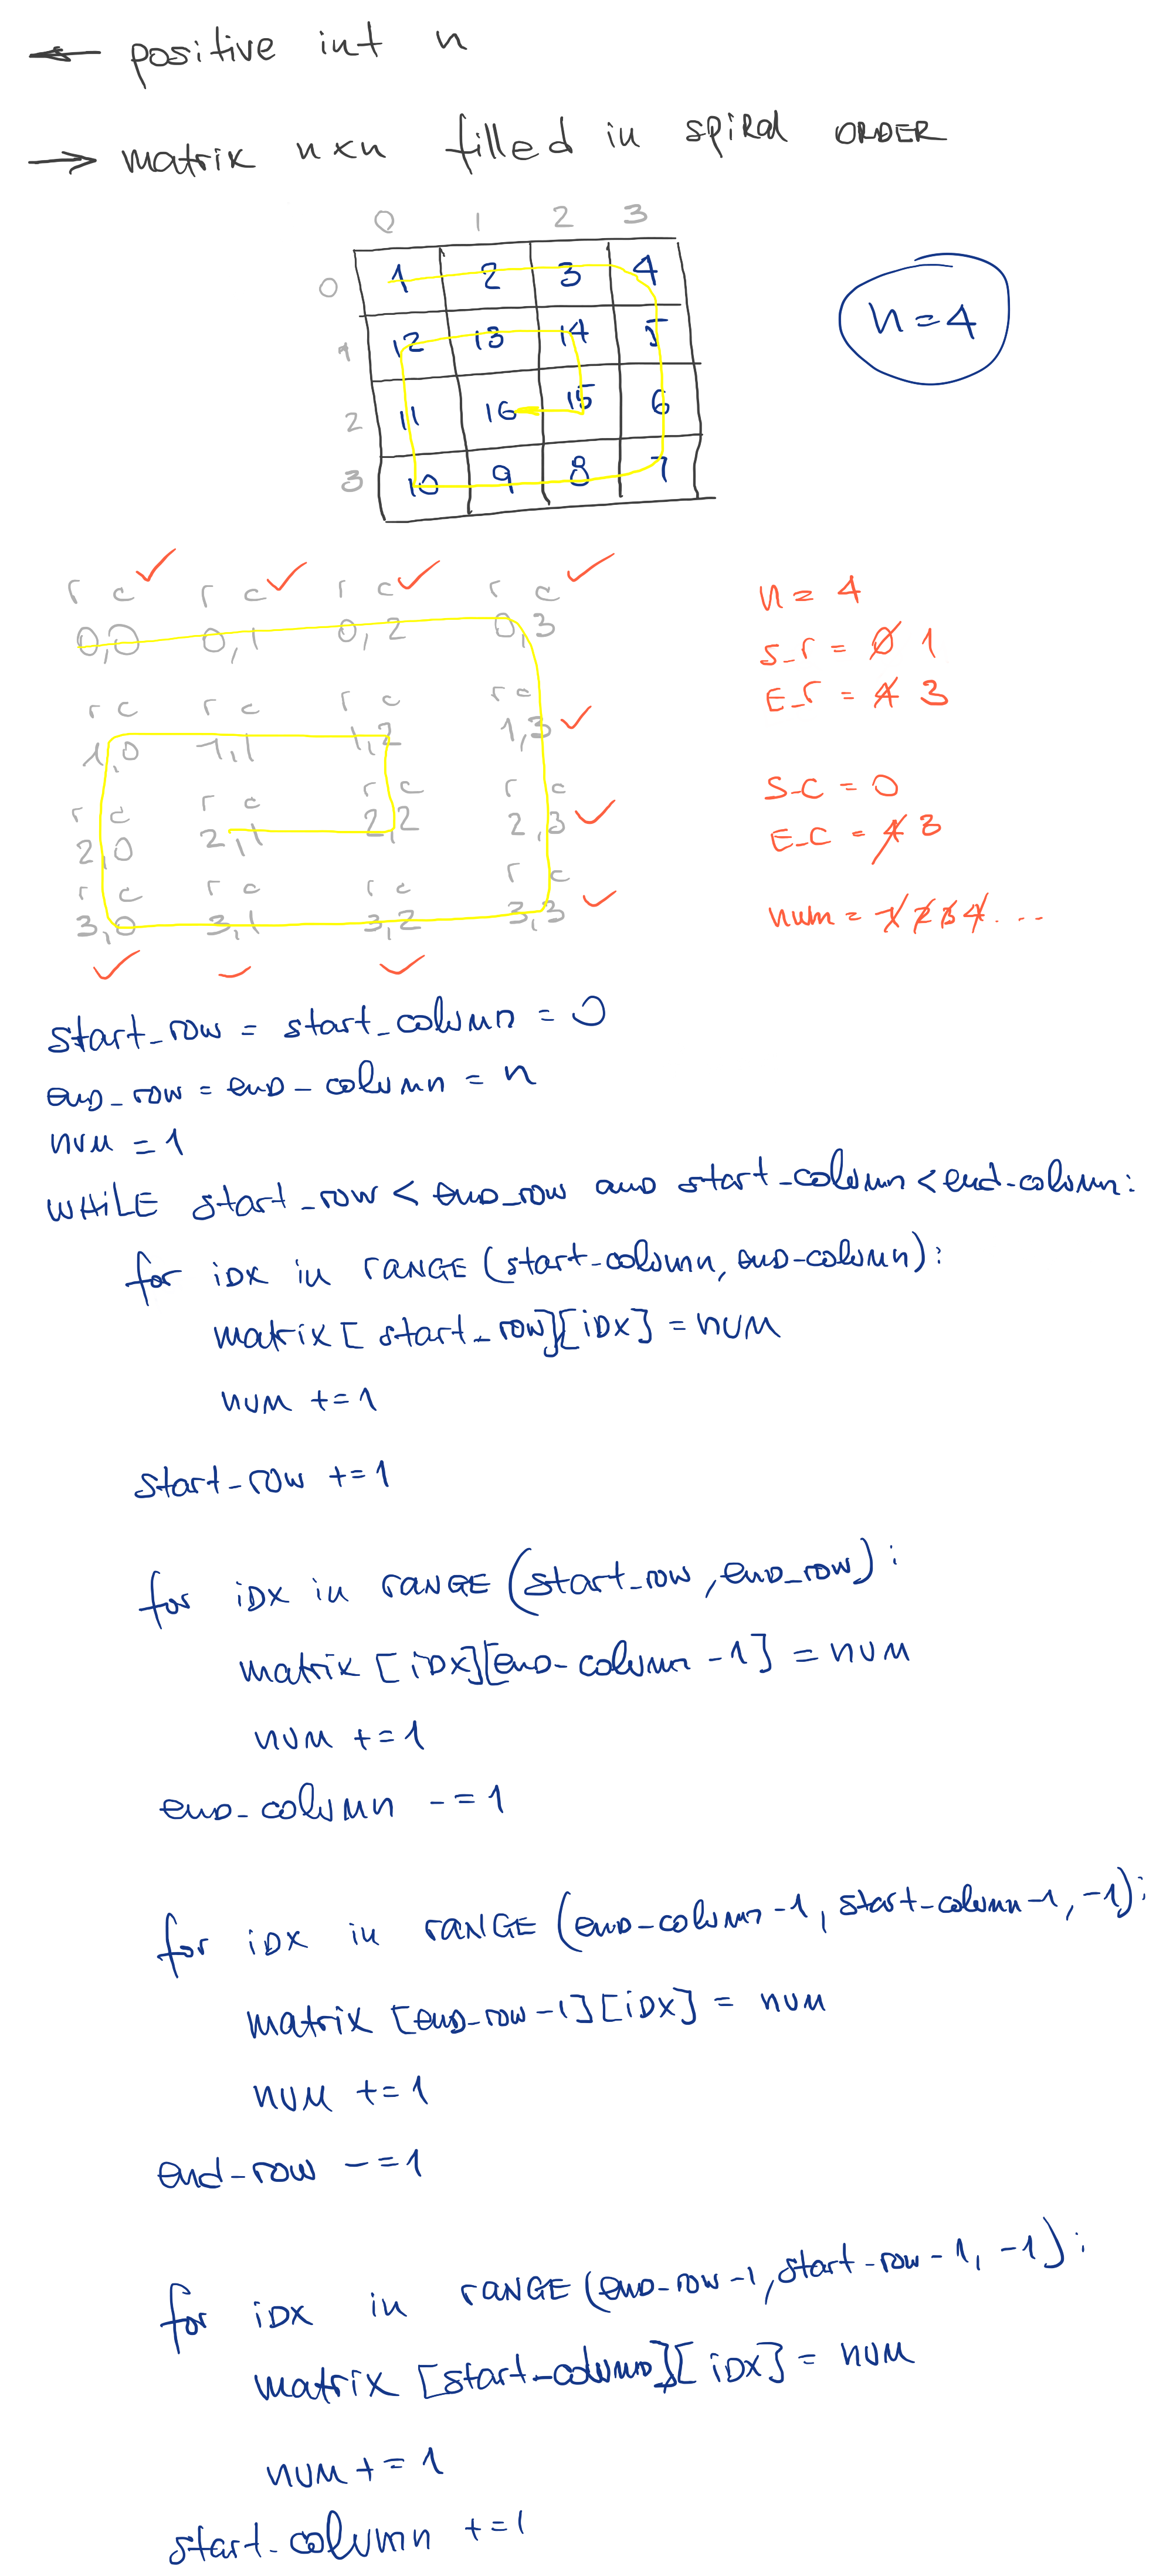 ← positive int n
→ matrix n×n filled in spiral ORDER
0 1 2 3
0 1 2 3 4
1 12 13 14 5
2 11 16 15 6
3 10 9 8 7
n=4
r c ✓ r c ✓ r c ✓ r c ✓
0,0 0,1 0,2 0,3
r c r c r c r c
1,0 1,1 1,2 1,3 ✓
r c r c r c r c
2,0 2,1 2,2 2,3 ✓
r c r c r c r c
3,0 3,1 3,2 3,3 ✓
✓ ✓ ✓
n = 4
s_r = 0 1
E_r = 4 3
s_c = 0
E_c = 4 3
num = 1 2 3 4 ...
start_row = start_column = 0
end_row = end_column = n
num = 1
WHILE start_row < end_row and start_column < end_column:
for idx in RANGE (start_column, end_column):
matrix [start_row][idx] = num
num += 1
start_row += 1
for idx in RANGE (start_row, end_row):
matrix [idx][end_column -1] = num
num += 1
end_column -= 1
for idx in RANGE (end_column-1, start_column-1, -1):
matrix [end_row-1][idx] = num
num += 1
end_row -= 1
for idx in RANGE (end_row-1, start_row-1, -1):
matrix [start_column][idx] = num
num += 1
start_column += 1